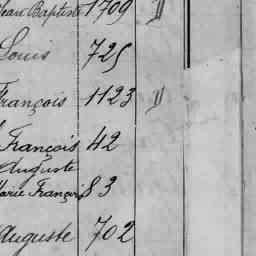 Jean Baptiste 1709 "
Louis 725
François 1123 "
François 42
Auguste
Marie François 83
Auguste 702